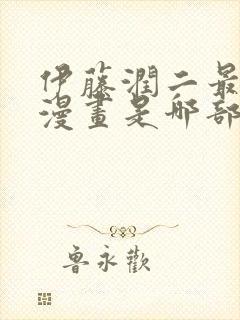 伊藤潤二最
漫畫是哪部
魯永歡